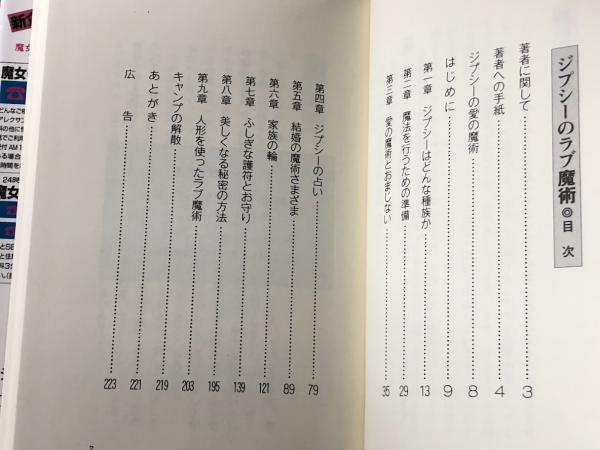 ジプシーのラブ魔術◎目次
著者に関して………3
著者への手紙………4
ジプシーの愛の魔術………8
はじめに………9
第一章 ジプシーはどんな種族か………13
第二章 魔法を行うための準備………29
第三章 愛の魔術とおまじない………35
第四章 ジプシーの占い………79
第五章 結婚の魔術さまざま………89
第六章 家族の輪………121
第七章 ふしぎな護符とお守り………139
第八章 美しくなる秘密の方法………195
第九章 人形を使ったラブ魔術………203
キャンプの解散………219
あとがき………221
広告………223
魔女
魔女
24時